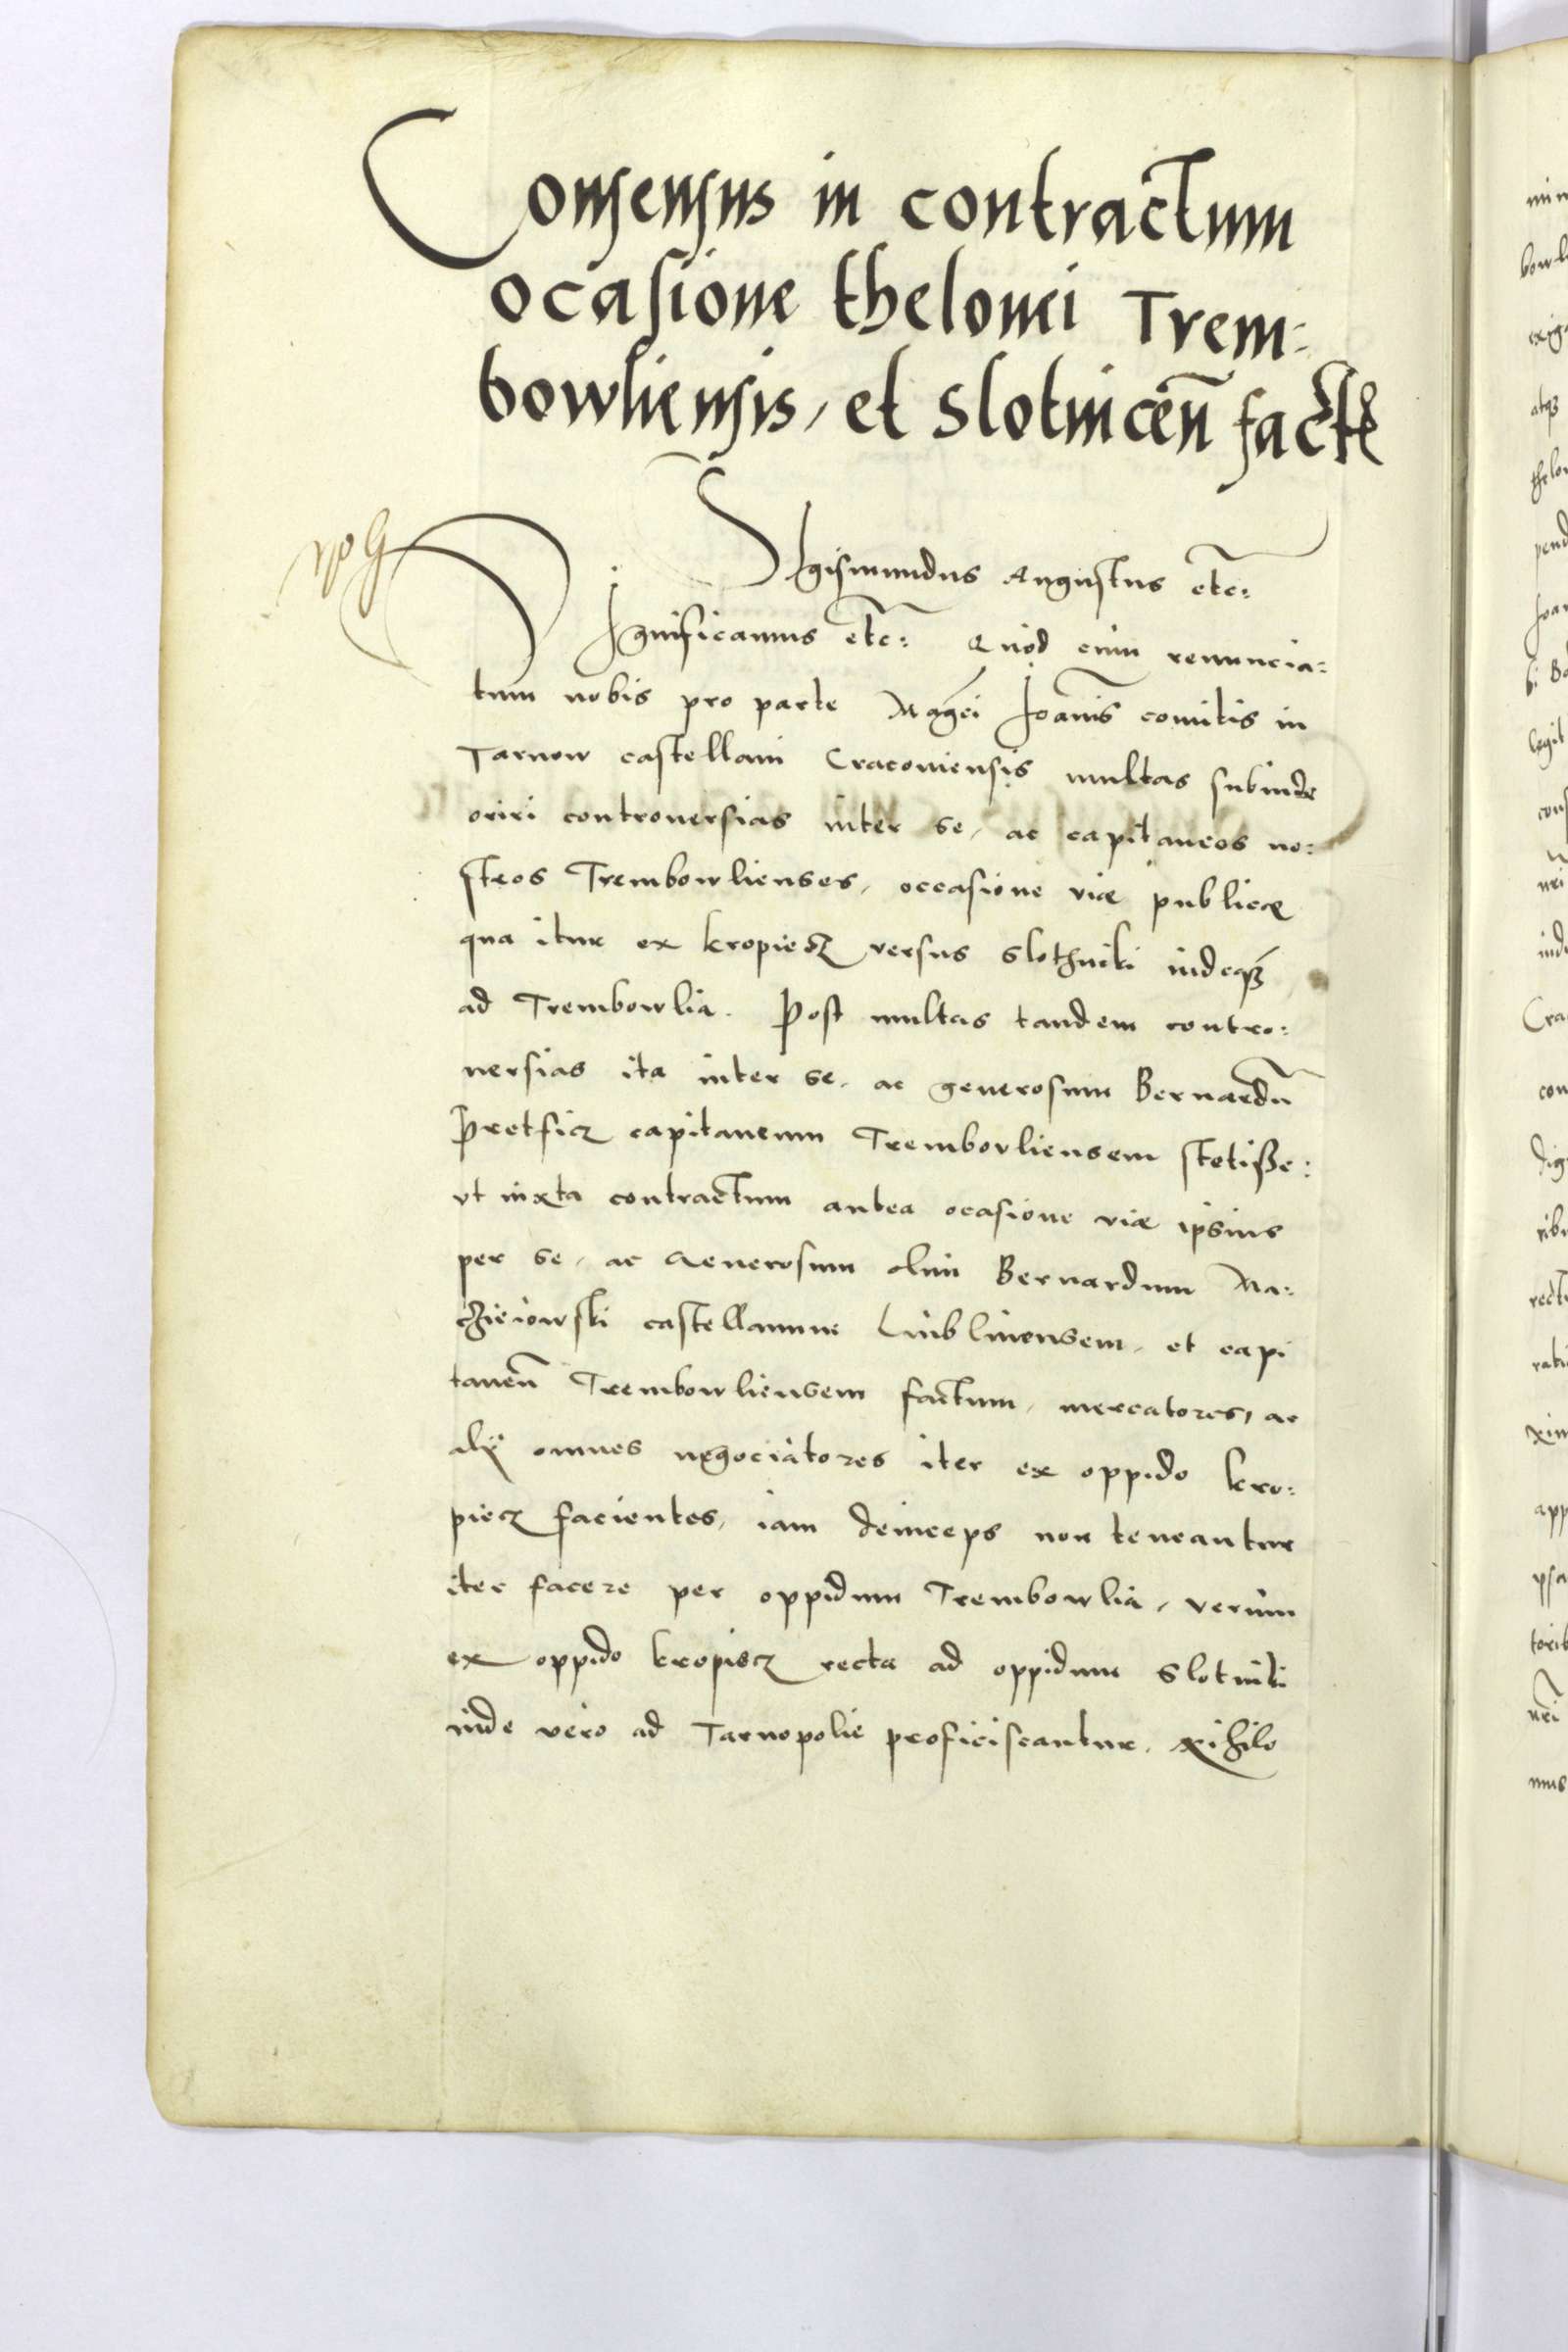 Consensus in contractum
ocasione thelonei Trem=
bowliensis, et Slotnicen̄ fact̄
Sigismundus Augustus etc:
Significamus etc: Quod cum renuncia=
tum nobis pro parte Magcī Ioannis comitis in
Tarnow castellani Cracoviensis multas subinde
oriri controversias inter se, ac capitaneos no=
stros Trembowlienses, occasione viæ publicæ
qua itur ex kropiecz versus Slothniki indeq3
ad Trembowlia. Post multas tandem contro=
versias ita inter se, ac generosum Bernardū
Pretficz capitaneum Trembovliensem stetisse:
vt iuxta contractum antea ocasione viæ ipsius
per se, ac Generosum olim Bernardum Ma=
cziéiowski castellanum Liublinensem, et capi
taneū Trembowliensem factum, mercatores, ac
alÿ omnes negociatores iter ex oppido kro=
piecz facientes, iam deinceps non teneantur
iter facere per oppidum Trembowlia, verum
ex oppido kropiecz recta ad oppidum Slotniki
inde vero ad Tarnopolie proficiscantur. Nihilo